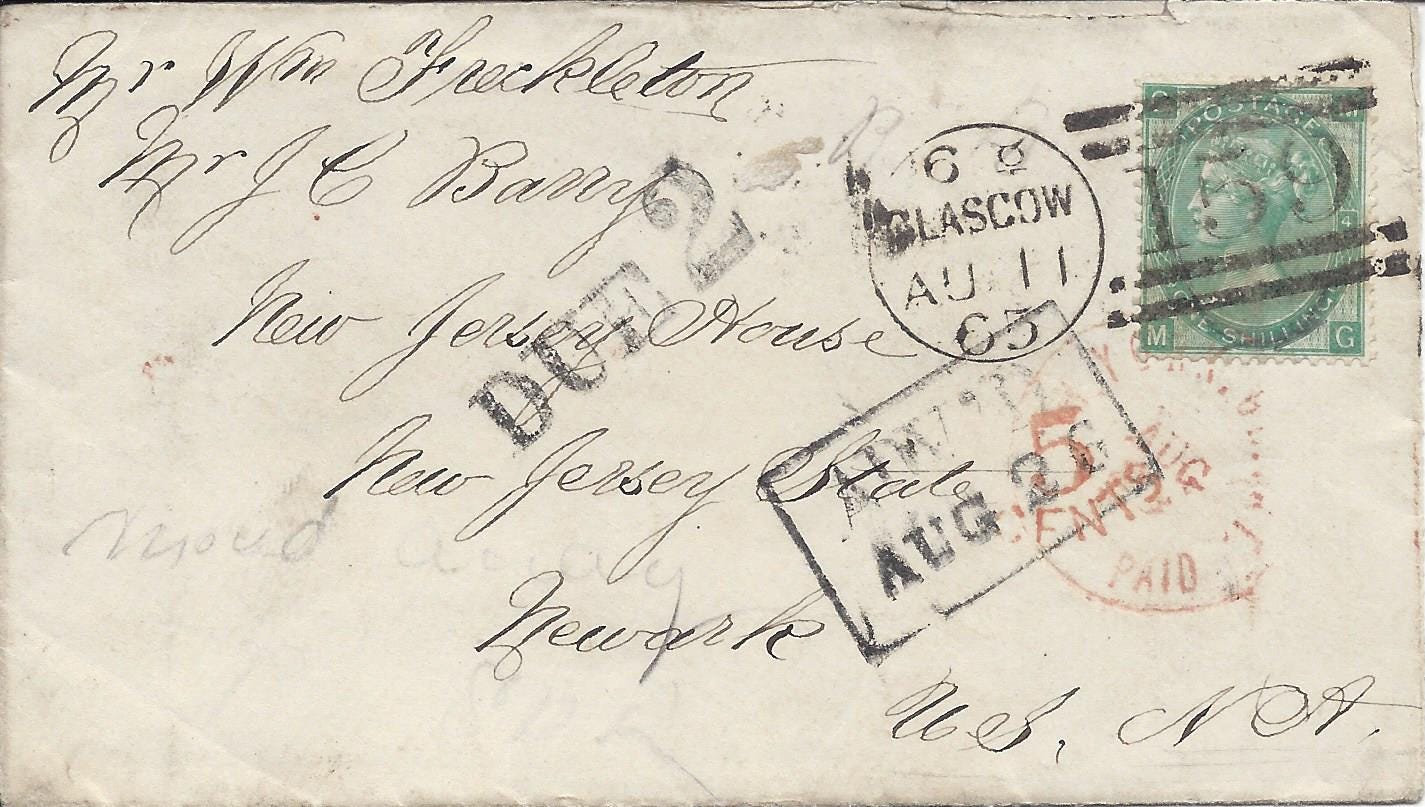 Mr Wm Freckleton
Mr J C Barry
New Jersey House
New Jersey State
Newark
U.S. N A.
DUE 2
6
GLASGOW
AU 11
65
159
POSTAGE
ONE SHILLING
4
M G
AUG 2
5
CENTS
AUG
PAID
moved away